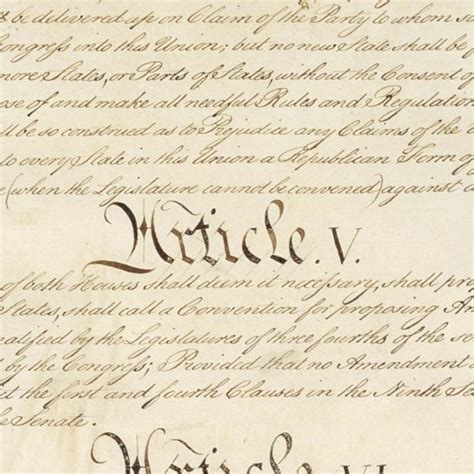 be delivered up on Claim of the Party to whom s
Congress into this Union; but no new State shall be f
more States, or Parts of States, without the Consent of
ose of and make all needful Rules and Regulation
ll be so construed as to Prejudice any Claims of the
to every State in this Union a Republican Form of
e (when the Legislature cannot be convened) against
Article. V.
of both Houses shall deem it necessary, shall prop
States, shall call a Convention for proposing Am
ratified by the Legislatures of three fourths of the se
by the Congress; Provided that no Amendment
d the first and fourth Clauses in the Ninth Se
e Senate.
Article. VI